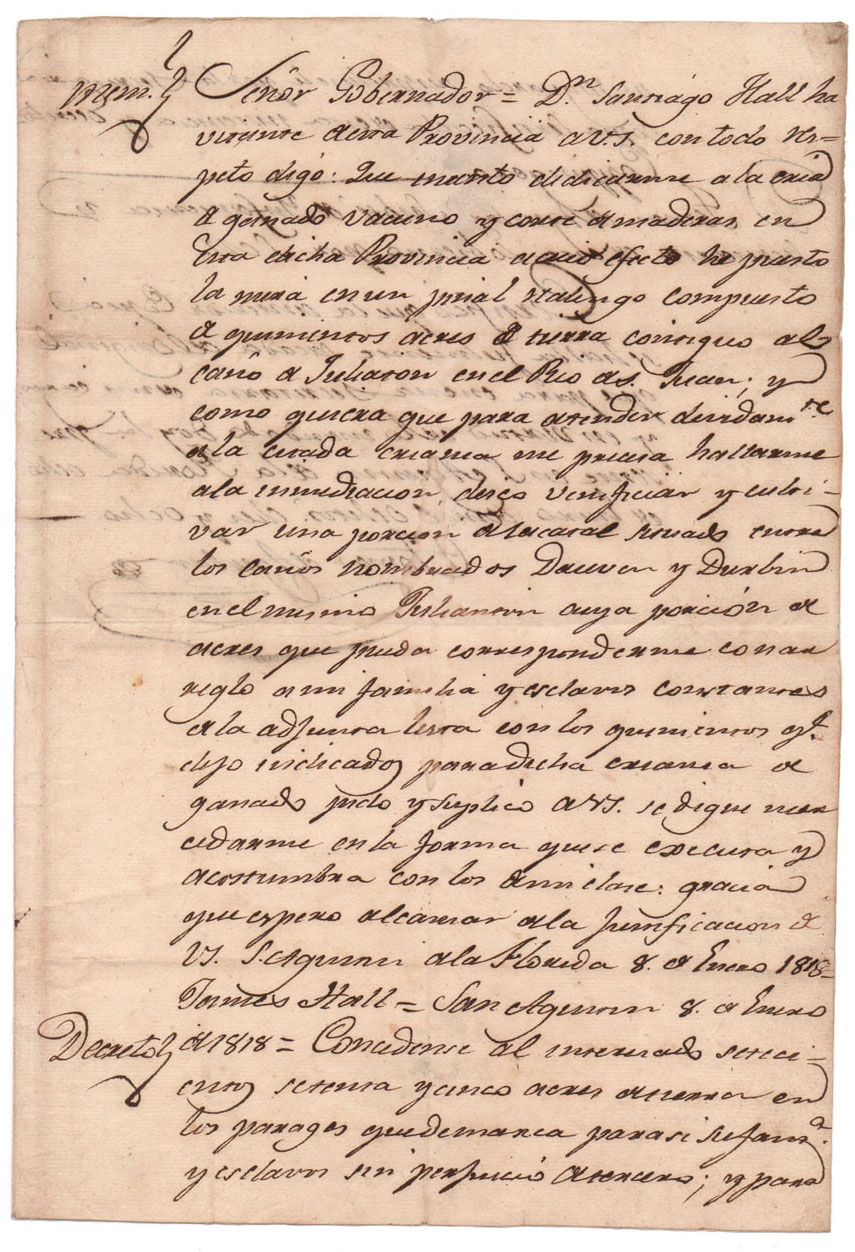 Mem.l Señor Gobernador = D.n Santiago Hall ha
vitante de esta Provincia a V.S. con todo res-
peto digo: Que intento dedicarme a la cria
de ganado vacuno y corte de maderas en
esta dicha Provincia a cuio efecto he puesto
la mira en un pinal realengo compuesto
de quinientos acres de tierra contiguo al
caño de Juliaton en el Rio de S. Juan; y
como quiera que para atender devidam.te
a la citada crianza me precisa hallarme
a la inmediacion, deseo veneficiar y culti-
var una porcion situado entre
los caños nombrados y Durbin
en el mismo cuya porción de
acres que pueda corresponderme con ar
reglo a mi familia y esclavos constantes
de la adjunta lista con los quinientos q.e
dejo indicados para dicha crianza de
ganado pido y suplico a V.S. se digne mer
cedarme en la forma que se executa y
acostumbra con los de mi clase: gracia
que espero alcanzar de la Justificacion de
V.S. S. Agustin de la Florida 8. de Enero 1818=
James Hall = San Agustin 8. de Enero
Decreto de 1818 = Concedense al interesado seteci-
entos setenta y cinco acres de tierra en
los parages que demarca para si su fam.a
y esclavos sin perjuicio de tercero; y para